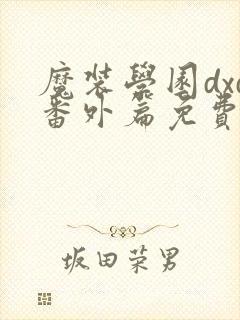 魔裝學園dxd
番外扁免費
坂田荣男